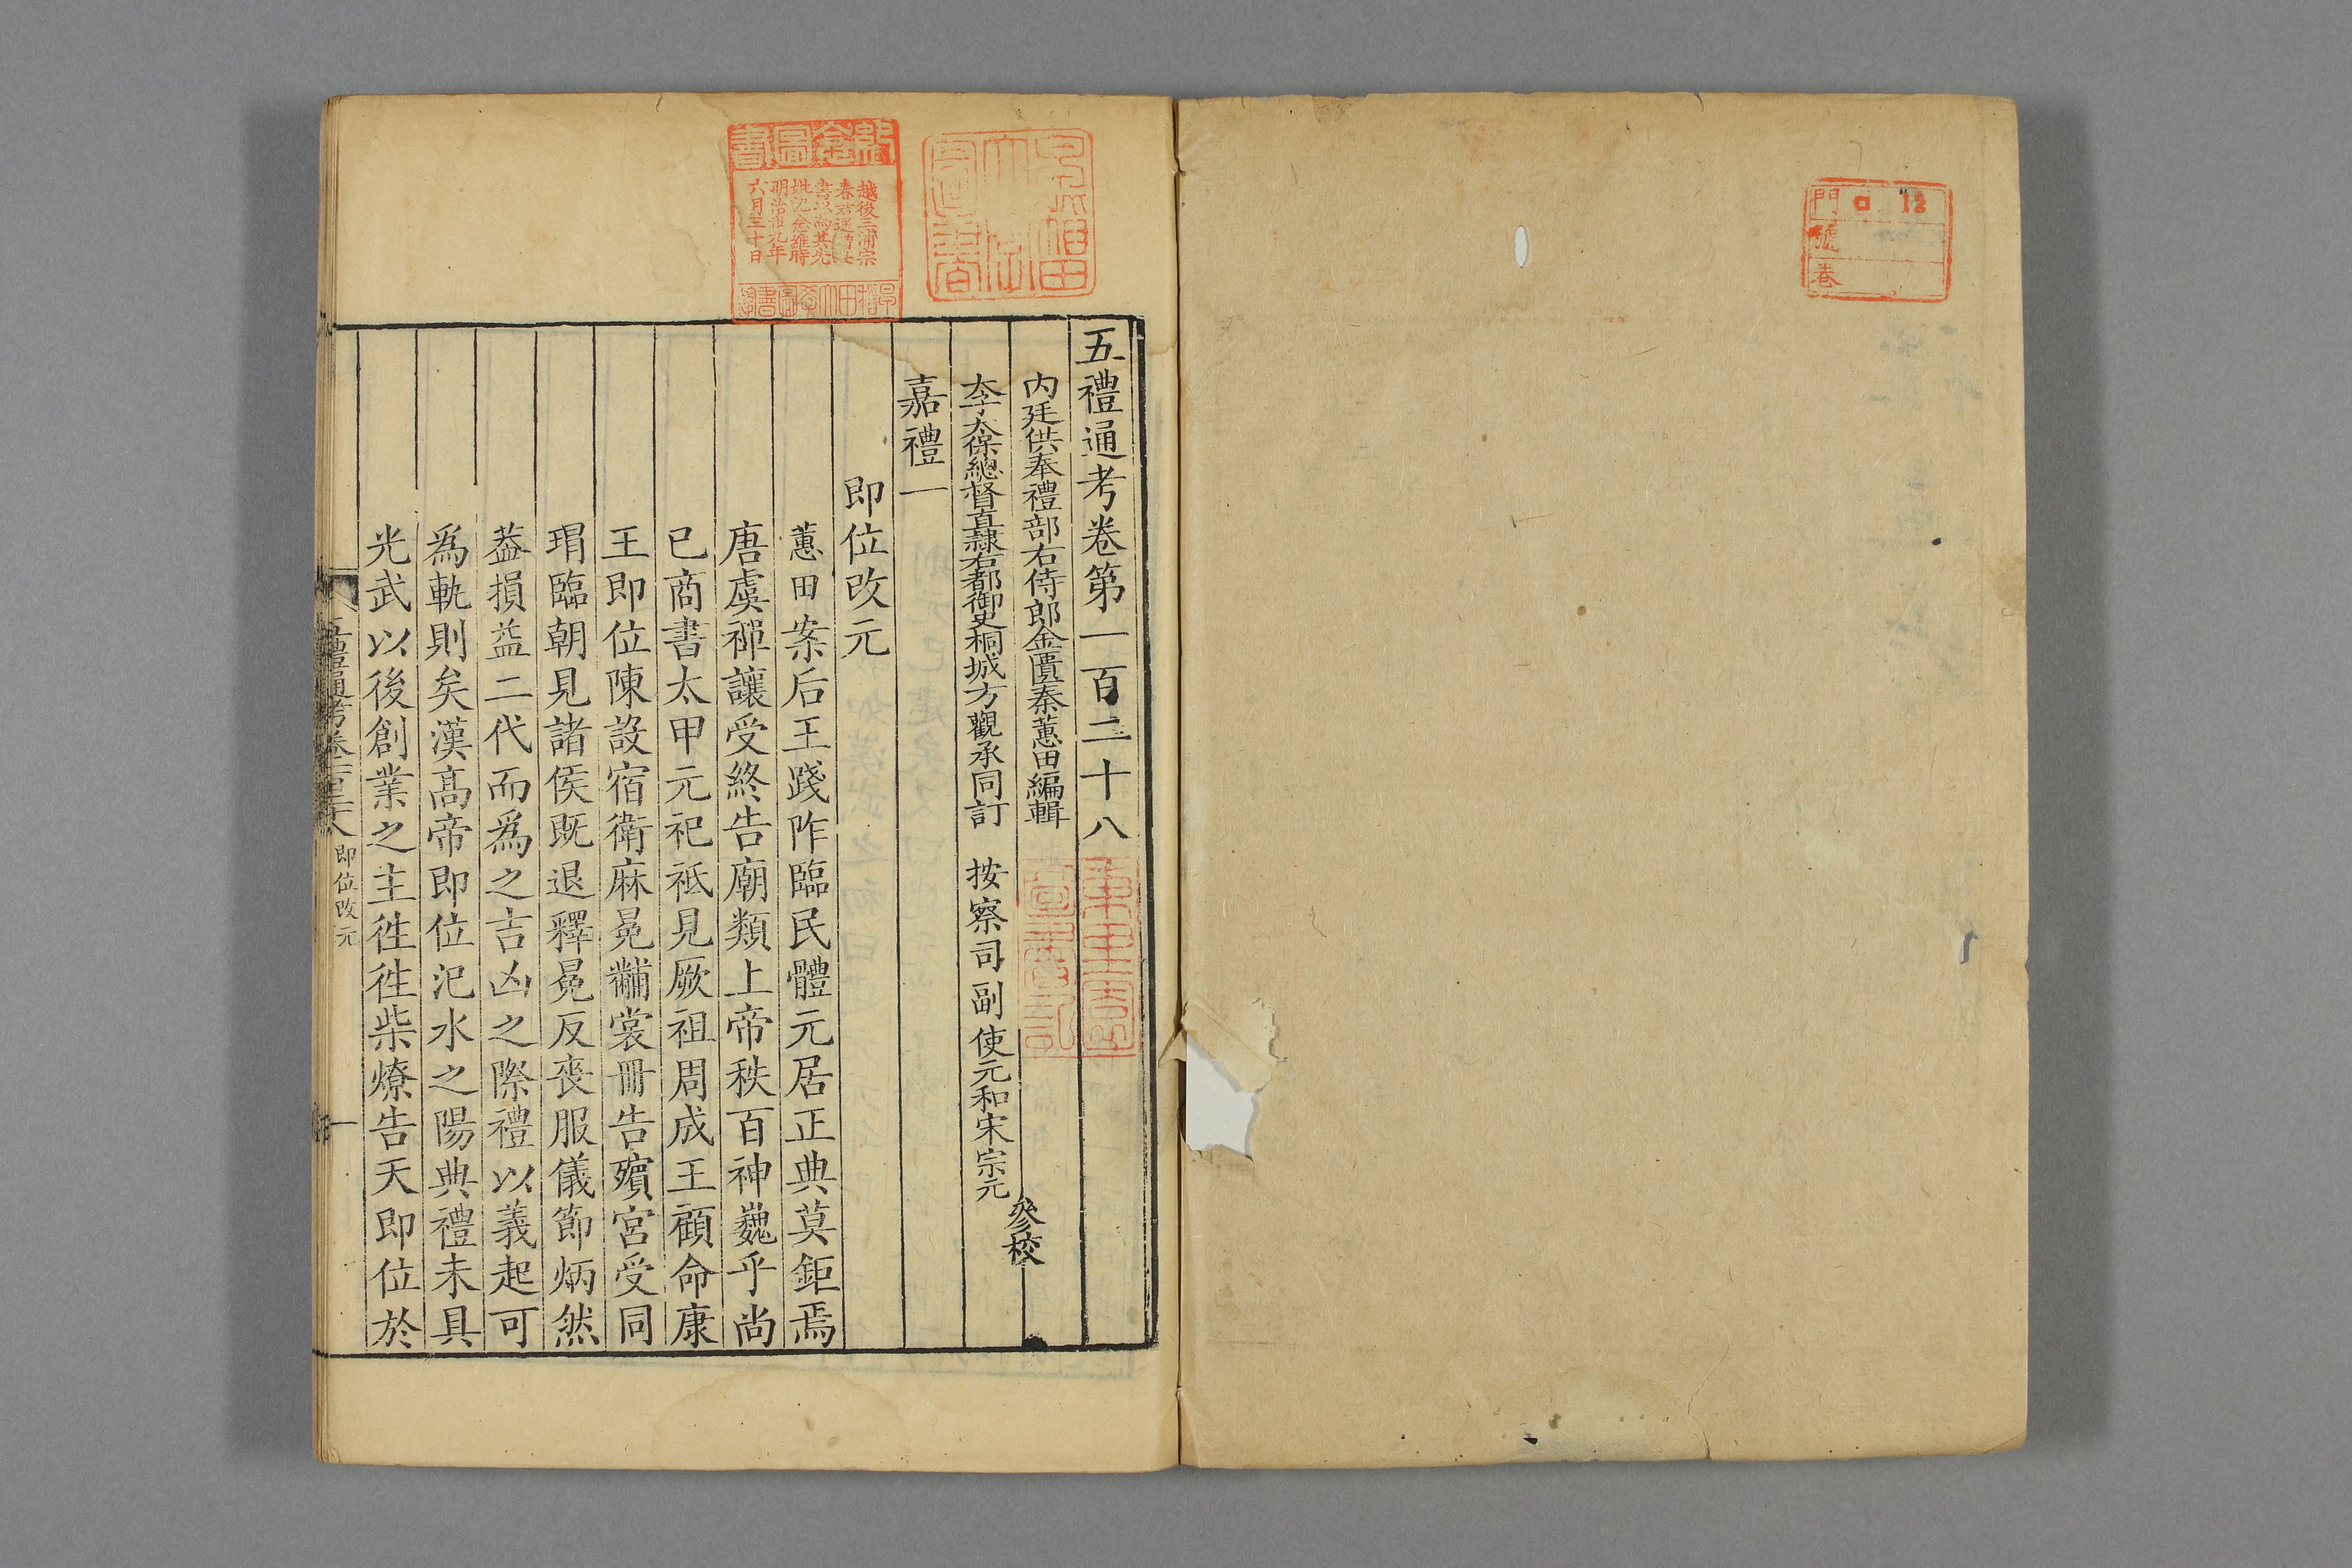 門 ロ 12
號
卷
早稲田大學圖書
館倉圖書
越後三浦宗
六月三十日
早稻田大學圖書館
五禮通考卷第一百二十八
内廷供奉禮部右侍郎金匱秦蕙田編輯
太子太保總督直隸右都御史桐城方觀承同訂 按察司副使元和宋宗元 參校
嘉禮一
即位改元
蕙田案后王踐阼臨民體元居正典莫鉅焉
唐虞禪讓受終告廟類上帝秩百神巍乎尚
已商書太甲元祀祗見厥祖周成王顧命康
王即位陳設宿衛麻冕黼裳冊告殯宮受同
瑁臨朝見諸侯既退釋冕反喪服儀節炳然
葢損益二代而爲之吉凶之際禮以義起可
爲軌則矣漢高帝即位汜水之陽典禮未具
光武以後創業之主徃徃柴燎告天即位於
五禮通考卷一百二十八 即位改元 一